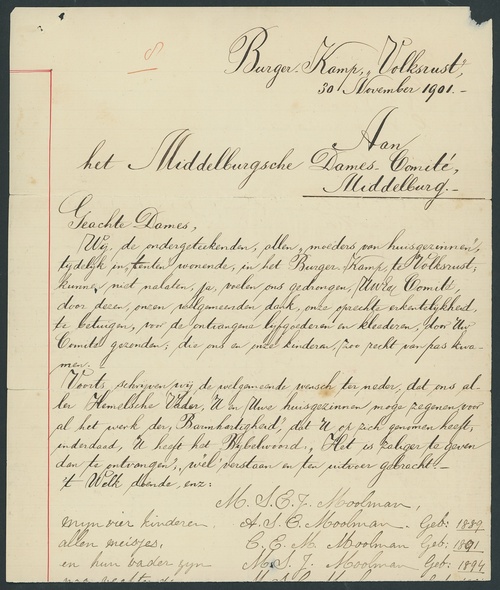 8
Burger Kamp, „Volksrust",
30 November 1901.-
Aan
het Middelburgsche Dames-Comité,
Middelburg.-
Geachte Dames,
Wij, de ondergeteekenden, allen „moeders van huisgezinnen",
tijdelijk in tenten wonende, in het Burger Kamp, te Volksrust;
kunnen niet nalaten, ja, voelen ons gedrongen, UwEd. Comité,
door dezen, onzen welgemeenden dank, onze oprechte erkentelijkheid,
te betuigen, voor de ontvangene lijfgoederen en kleederen, door Uw
Comité gezonden; die ons en onze kinderen, zoo recht van pas kwa-
men.-
Voorts, schrijven wij de welgemeende wensch ter neder, dat ons al-
ler Hemelsche Vader, U en Uwe huisgezinnen moge zegenen, voor
al het werk der „Barmhartigheid", dat U, op zich genomen heeft;
inderdaad, U heeft het Bijbelwoord: „Het is zaliger te geven
dan te ontvangen", wèl verstaan en ten uitvoer gebracht.-
't Welk doende, enz:
M. S. E. J. Moolman,
mijn vier kinderen. A. S. E. Moolman. Geb: 1889
allen meisjes, C. E. M. Moolman Geb: 1891
en hun vader zijn M. S. J. Moolman Geb: 1894